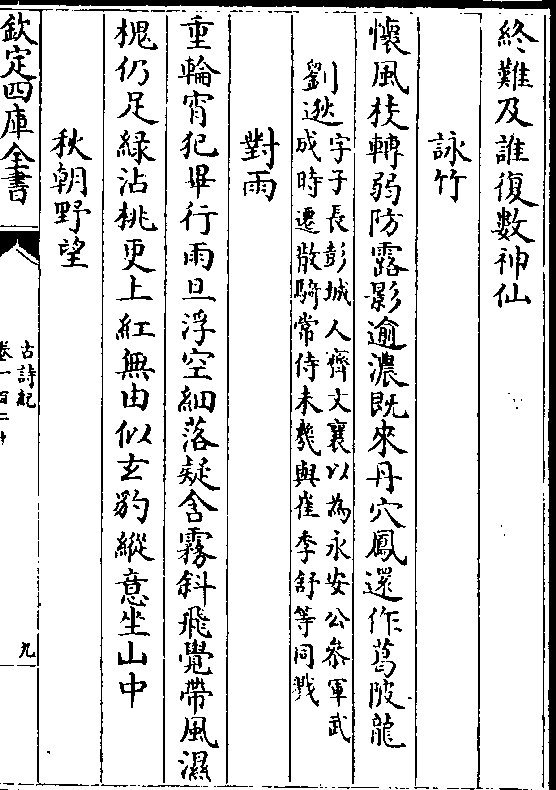 終難及誰復數神仙
詠竹
懷風枝轉弱防露影逾濃既來丹穴鳳還作葛陂龍
劉逖字子長彭城人齊文襄以為永安公參軍武
成時遷散騎常侍未幾與崔季舒等同戮
對雨
重輪宵犯畢行雨旦浮空細落疑含霧斜飛覺帶風濕
槐仍足綠沾桃更上紅無由似玄豹縱意坐山中
秋朝野望
欽定四庫全書
古詩紀
卷一百二十
九